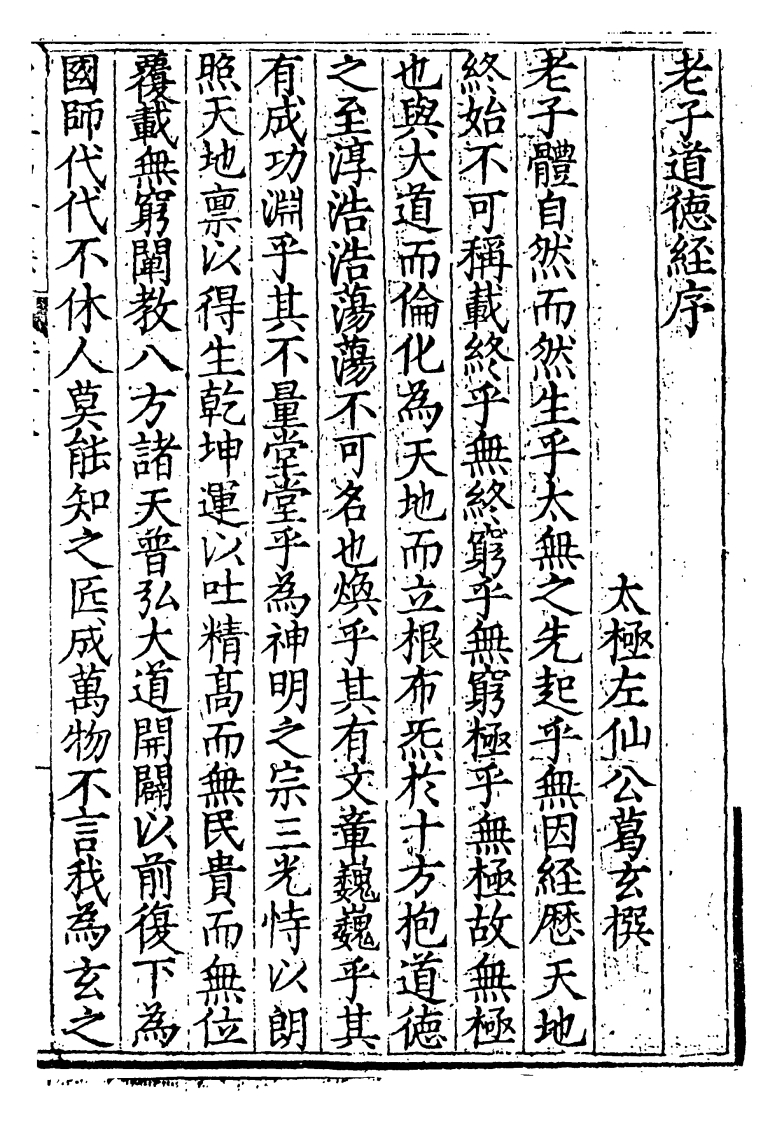 老子道德経序
太極左仙公葛玄撰
老子體自然而然生乎太無之先起乎無因経歷天地
終始不可稱載終乎無終窮乎無窮極乎無極故無極
也與大道而倫化為天地而立根布炁於十方抱道德
之至淳浩浩蕩蕩不可名也煥乎其有文章巍巍乎其
有成功淵乎其不量堂堂乎為神明之宗三光恃以朗
照天地禀以得生乾坤運以吐精髙而無民貴而無位
覆載無窮闡教八方諸天普弘大道開闢以前復下為
國師代代不休人莫能知之匠成萬物不言我為玄之